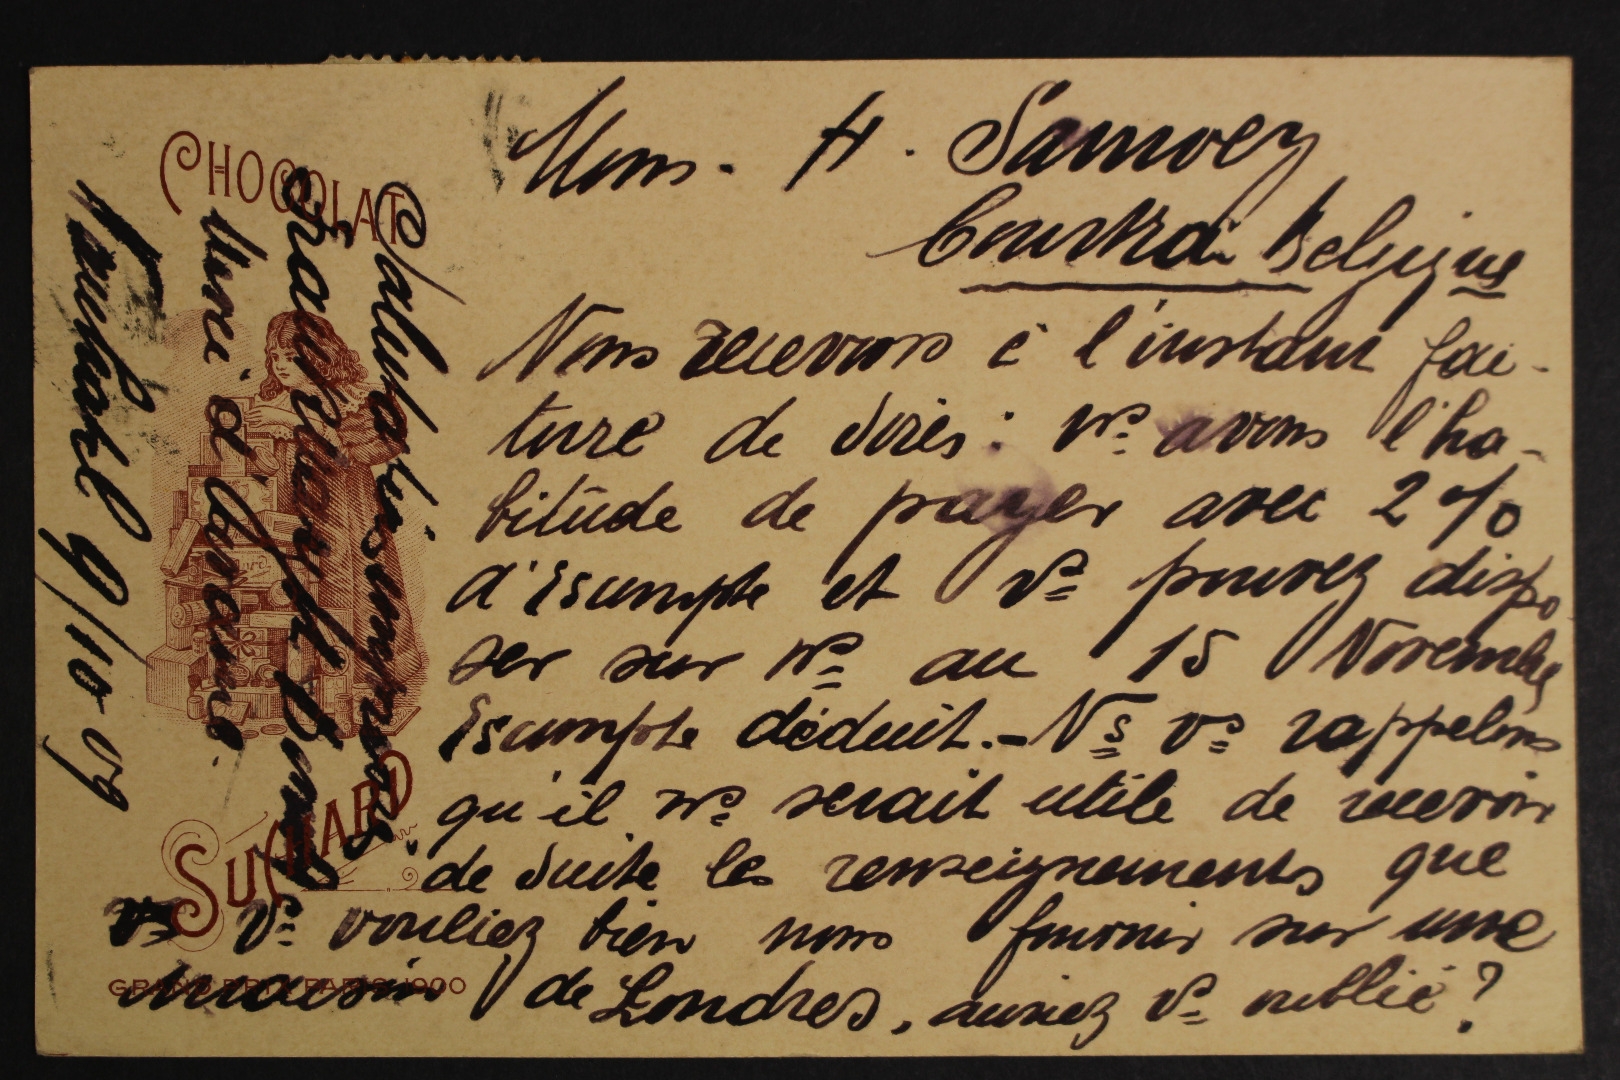 CHOCOLAT
SUCHARD
GRAND PRIX PARIS 1900
Mons. H. Samoey
Courtrai Belgique
Nous recevons à l'instant fac-
ture de Soies: ns avons l'ha-
bitude de payer avec 2%
d'Escompte et vs pouvez dispo
ser sur ns au 15 Novembre
Escompte déduit. - Ns vs rappelons
qu'il ns serait utile de recevoir
de suite les renseignements que
vs vouliez bien nous fournir sur une
maison de Londres, auriez vs oublié?
Salutations empressées
9/10 09